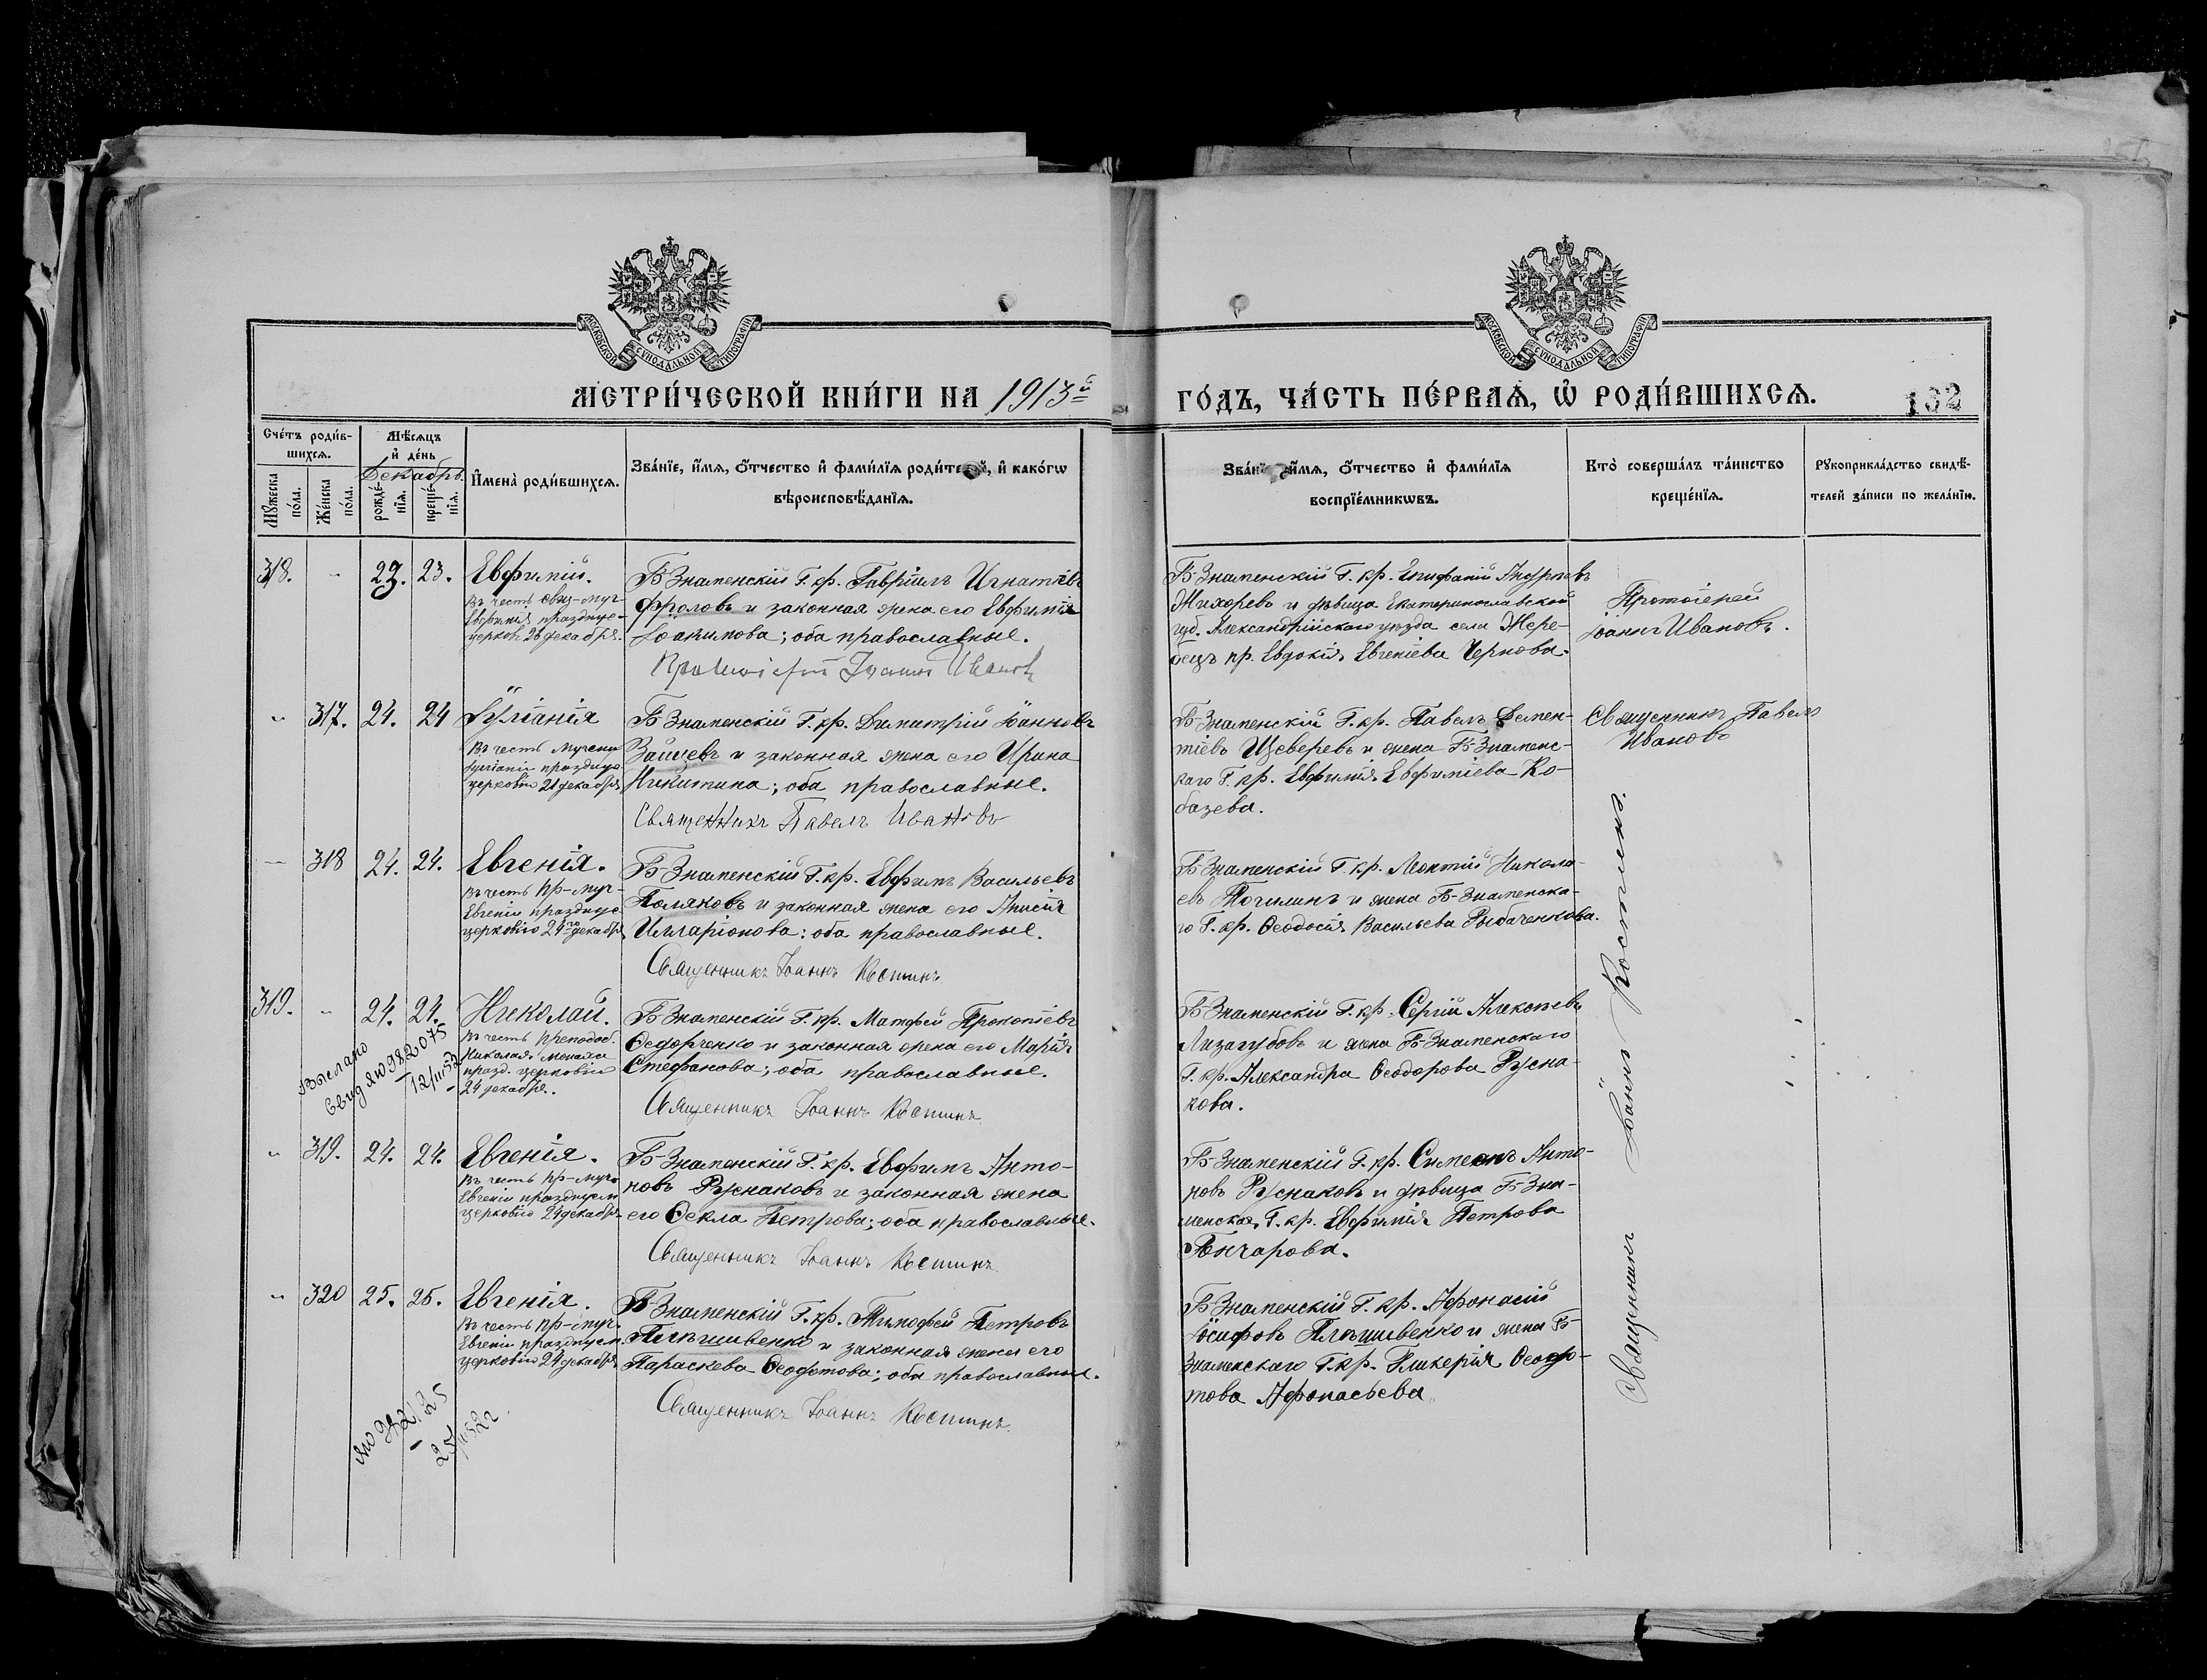 МОСКОВСКОЙ СѴНОДАЛЬНОЙ ТИПОГРАФІИ
МОСКОВСКОЙ СѴНОДАЛЬНОЙ ТИПОГРАФІИ
МЕТРИ́ЧЕСКОЙ КНИ́ГИ НА 1913й
ГО́ДЪ, ЧА́СТЬ ПЕ́РВАѦ, Ѡ҆ РОДИ́ВШИХСѦ.
132
Сче́тъ роди́в-
шихсѧ.
Мꙋ́жеска по́ла.
Же́нска по́ла.
Мѣ́сѧцъ
и҆ де́нь
Декабрь.
рожде́-
нїѧ.
креще́-
нїѧ.
И҆мена̀ роди́вшихсѧ.
Зва́нїе, и҆́мѧ, ѻ҆́тчество и҆ фами́лїѧ роди́телей, и҆ како́гѡ
вѣроисповѣ́данїѧ.
Зва́нїе, и҆́мѧ, ѻ҆́тчество и҆ фами́лїѧ
воспрїе́мникѡвъ.
Кто̀ соверша́лъ та́инство
креще́нїѧ.
Рꙋкоприкла́дство свидѣ́-
телей за́писи по жела́нїю.
318. " 23. 23. Евфимій.
Въ честь свящ-муч-
Евфимія празднуе-
церков. 28 декабря.
Б-Знаменскій Г. кр. Гавріилъ Игнатіевъ
Фроловъ и законная жена его Евфимія
Іоакимова; оба православные.
Протоіерей Іоаннъ Ивановъ
Б-Знаменскій Г. кр. Епифаній Андреевъ
Жихоревъ и дѣвица Екатеринославской
губ. Александрійскаго уѣзда села Жере-
бецъ кр. Евдокія Евгеніева Чернова.
Протоіерей
Іоаннъ Ивановъ.
" 317. 21. 24 Іуліанія
Въ честь мучени
Іуліаніи праздную
церковію 21 декабря
Б-Знаменскій Г. кр. Димитрій Іоанновъ
Зайцевъ и законная жена его Ирина
Никитина; оба православные.
Священникъ Павелъ Ивановъ
Б-Знаменскій Г. кр. Павелъ Демен-
тіевъ Щеверевъ и жена Б-Знаменс-
каго Г. кр. Евфимія Евфиміева Ко-
базева.
Священникъ Павелъ
Ивановъ
" 318 24. 24. Евгенія.
Въ честь пр-муч-
Евгеніи празднуе
церковію 24го декабря
Б-Знаменскій Г. кр. Евфимъ Васильевъ
Поляковъ и законная жена его Анисія
Илларіонова: оба православные.
Священникъ Іоаннъ Костинъ
Б-Знаменскій Г. кр. Леонтій Никола-
евъ Точилинъ и жена Б-Знаменска-
го Г. кр. Ѳеодосія Васильева Рыбаченкова.
319. " 24. 24. Николай.
Въ честь преподоб.
Николая Монаха
празд. церковію
24 декабря.
Выслано
Свид ЯЮ 982075
12/III 52
Б-Знаменскій Г. кр. Матфей Прокопіевъ
Ѳедорченко и законная жена его Марія
Стефанова; оба православные.
Священникъ Іоаннъ Костинъ
Б-Знаменскій Г. кр. Сергій Алексѣевъ
Лизагубовъ и жена Б-Знаменскаго
Г. кр. Александра Ѳеодорова Русна-
кова.
" 319. 24. 24. Евгенія.
Въ честь пр-муч
Евгеніи празднуем
церковію 24 декабря
Б-Знаменскій Г. кр. Евфимъ Анто-
новъ Руснаковъ и законная жена
его Ѳекла Петрова; оба православные.
Священникъ Іоаннъ Костинъ
Б-Знаменскій Г. кр. Симеонъ Анто-
новъ Руснаковъ и дѣвица Б-Зна-
менская, Г. кр. Евфимія Петрова
Гончарова.
" 320 25. 25. Евгенія.
Въ честь пр-муч.
Евгеніи празднуем
церковію 24 декабря
ЯЮ 982125
25/III 52 г.
Б-Знаменскій Г. кр. Тимофей Петровъ
Плѣшивенко и законная жена его
Параскева Ѳеодотова; оба православные.
Священникъ Іоаннъ Костинъ
Б-Знаменскій Г. кр. Афонасій
Іосифовъ Плѣшивенко и жена Б-
Знаменскаго Г. кр. Гликерія Ѳеодо-
това Афонасьева
Священникъ Іоаннъ Костинъ.